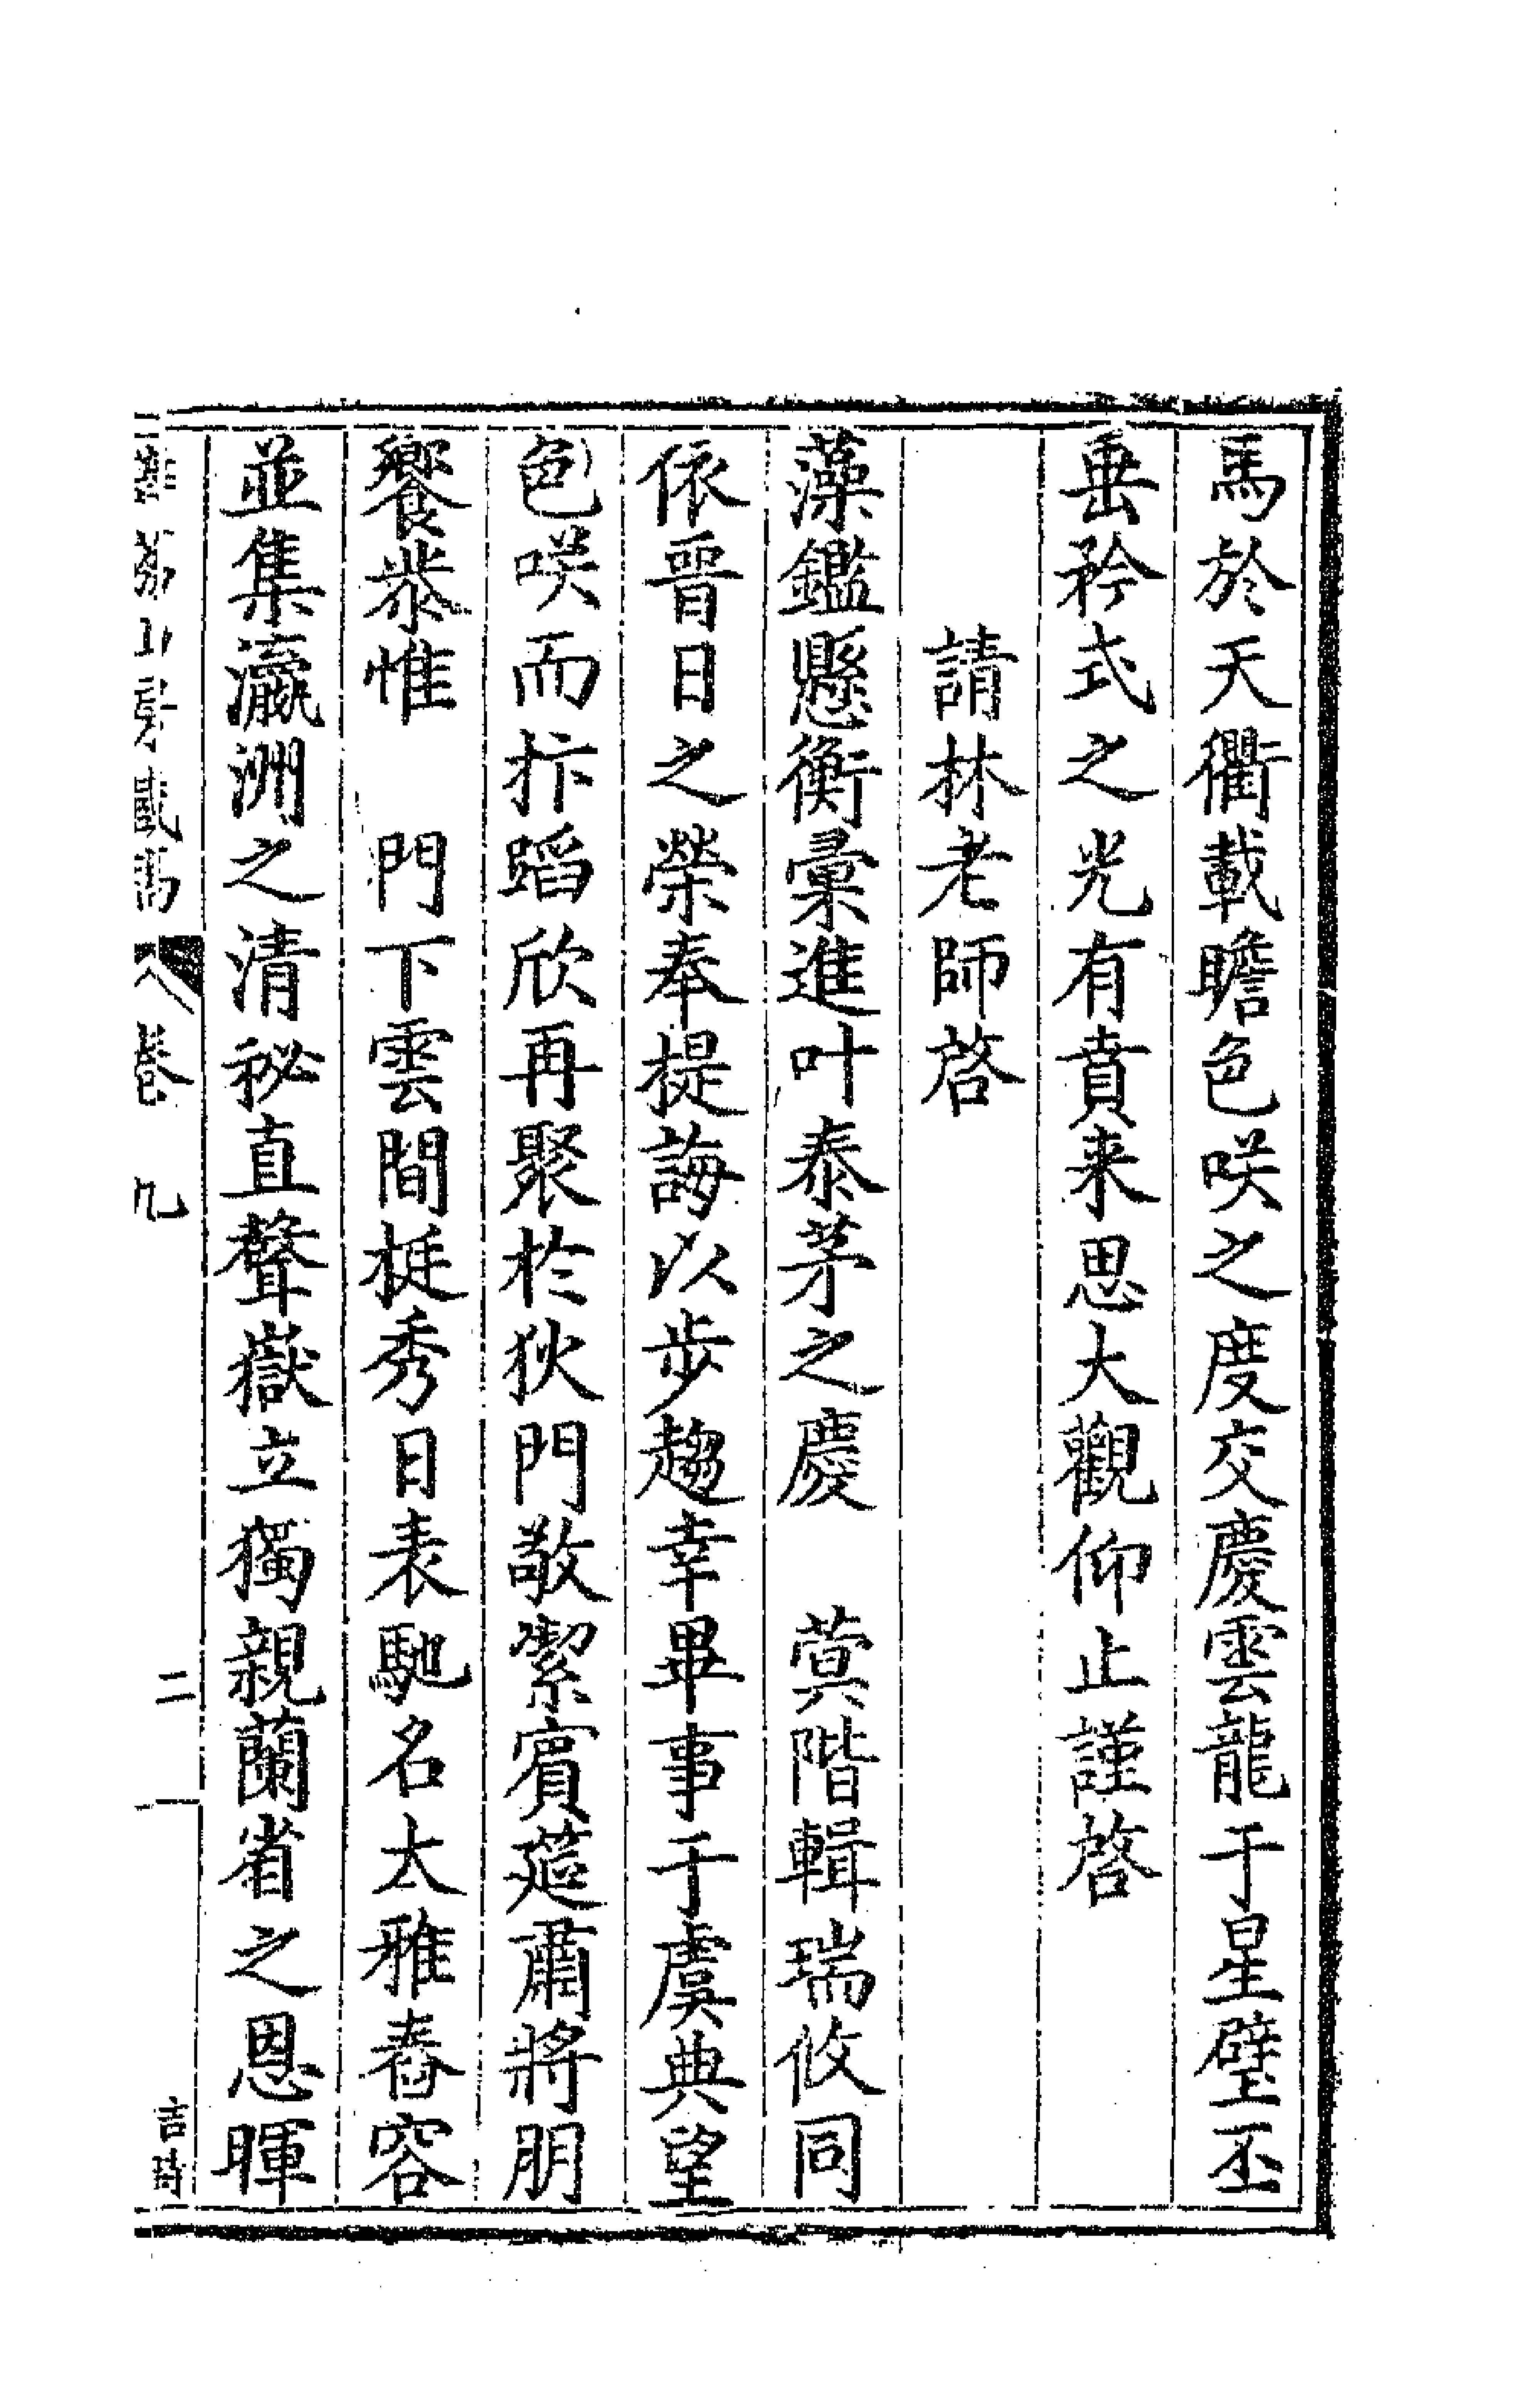 馬於天衢載瞻色咲之度交慶雲龍于星璧丕
垂矜式之光有賁来思大觀仰止謹啓
請林老師啓
藻鑑懸衡彙進叶泰茅之慶 蓂階輯瑞攸同
依晋日之榮奉提誨以步趨幸畢事于虞典望
色咲而抃蹈欣再聚於狄門敬潔賓筵肅將朋
饗恭惟 門下雲間挺秀日表馳名大雅舂容
並集瀛洲之清祕直聲嶽立獨親蘭省之恩暉
荔山房藏稿 卷九 二